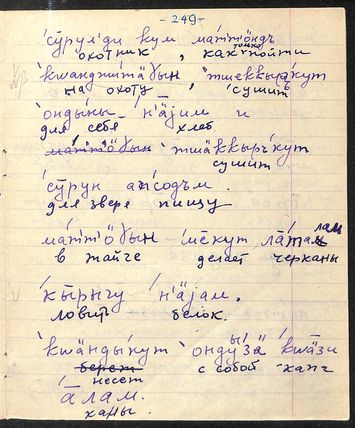 -249-
′сӯрул′ди кум ма́т′т′ӧндъ
охотник, как только пойти
′кшанджи́тӓɣын ′тшеккырӓ́кут
на охоту, сушить
′ондыны_ н′ӓ́jим и
для себя хлеб
ма́т′т′ӧɣын ′тшаккыръ́кут
сушит
′сӯрун апсодъм.
для звере пищу
ма́т′т′ӧɣын ′мӗкут ла́там лам
в тайге делает черканы
′кы̄рыгу ′н′ӓjам.
ловить белок.
′кшӓнды́кут ′онду́зӓ ′кшӓзи
берет несет с собой -капч
а̄лам.
каны.